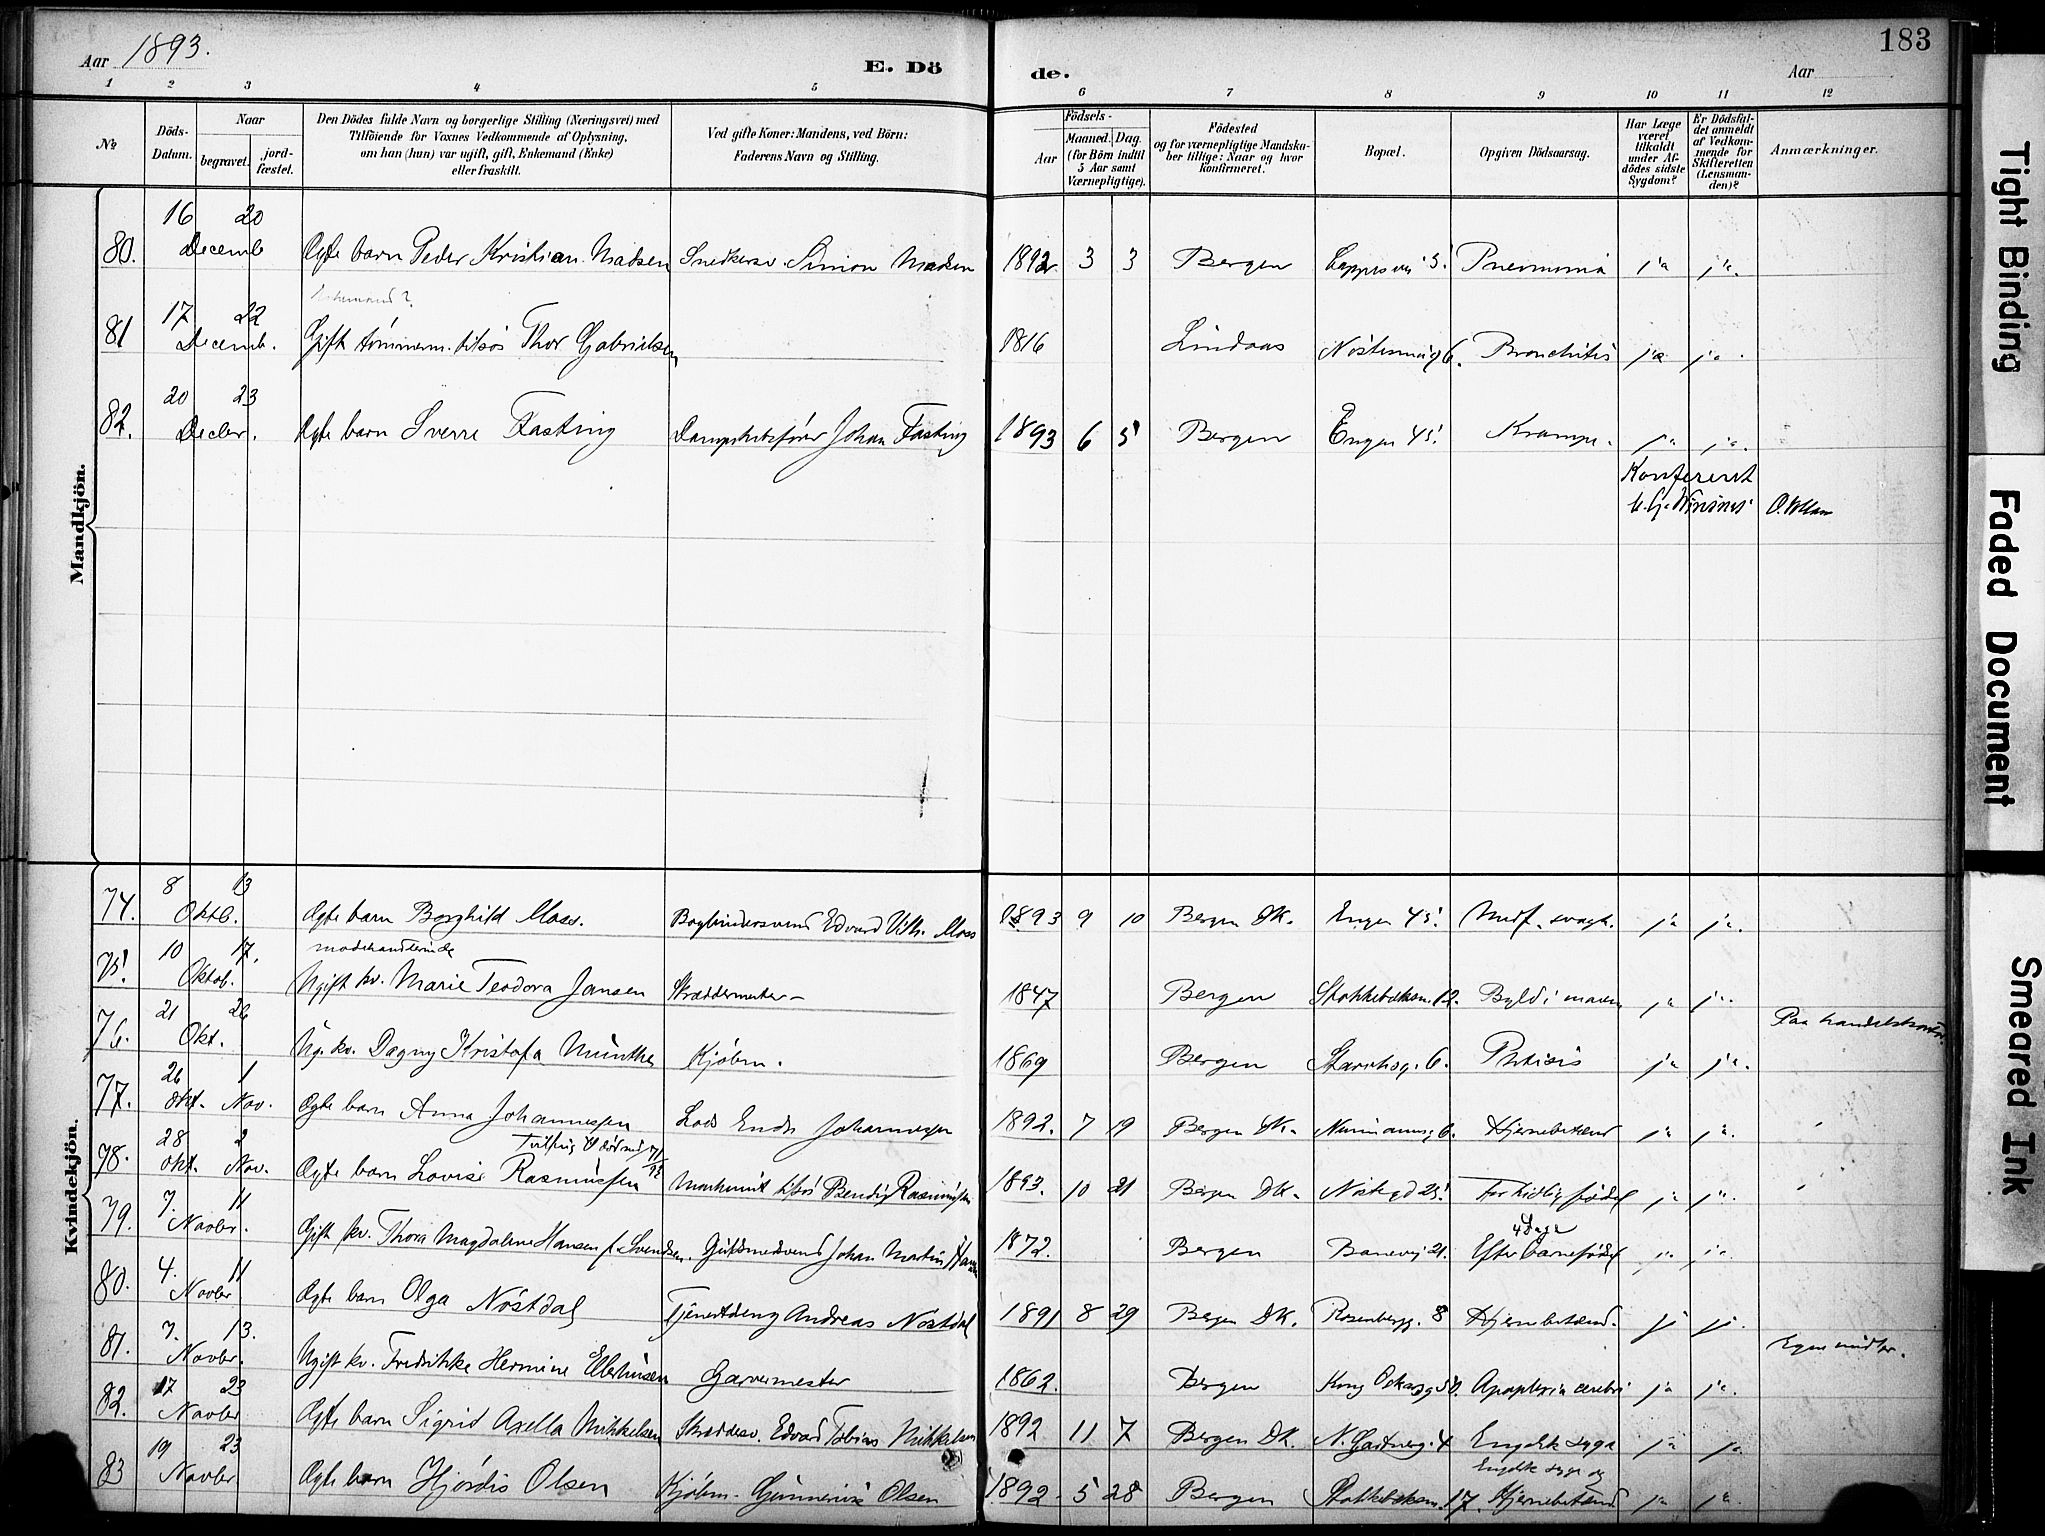 Aar 1893.
E. Dö
de.
Aar
183
1 2 3 4 5 6 7 8 9 10 11 12
No
Döds-Datum.
Naar
begravet. jordfæstet.
Den Dödes fulde Navn og borgerlige Stilling (Næringsvei) med
Tilföiende for Voxnes Vedkommende af Oplysning,
om han (hun) var ugift, gift, Enkemand (Enke)
eller fraskilt.
Ved gifte Koner: Mandens, ved Börn:
Faderens Navn og Stilling.
Födsels-
Aar Maaned. Dag.
(for Börn indtil
5 Aar samt
Værnepligtige).
Födested
og for værnepligtige Mandska-
ber tillige: Naar og hvor
konfirmeret.
Bopæl.
Opgiven Dödsaarsag.
Har Læge
været
tilkaldt
under Af-
dödes sidste
Sygdom?
Er Dödsfal-
det anmeldt
af Vedkom-
mende for
Skifteretten
(Lensman-
den)?
Anmærkninger.
Mandkjön.
80. 16 20 Decemb Ægte barn Peder Kristian Madsen Snedkersv. Simon Madsen 1892 3 3 Bergen 5. Pneumoni ja ja.
Enkemand?
81 17 22 Decemb. Gift tømmerm. Thor Gabrielsen 1816 Lindaas 6. Bronchitis ja ja.
82. 20 23 Decbr. Ægte barn Sverre Fasting Dampskibsfører Johan Fasting 1893 6 5 Bergen Engen 45. Krampe. ja ja.
Konfereret
Kvindekjön.
74. 8 13 Oktb. Ægte barn Borghild Moss. Bogbindersvend Edvard Vilh. Moss 1893 9 10 Bergen DK. Engen 45. Medf. svagh. ja ja.
modehandlerinde
75. 10 17. Oktob. Ugift kv. Marie Teodora Jansen Skræddermester - 1847 Bergen Stokkebakken. 12. Byld i maven ja ja.
76. 21 26 Okt. Ug. kv. Dagny Kristofa Münthe Kjøbm. 1869 Bergen 6. Phtisis ja ja. Paa handelskontor.
77. 26 1 Okt. Nov. Ægte barn Anna Johannesen Lods Johannesen 1892. 7 19 Bergen DK. Neumannsg 6. Hjernebetænd ja ja.
78. 28 2 Okt. Nov. Ægte barn Lovise Rasmüssen Rasmüssen 1893. 10 21 Bergen DK. Nøstegd 25. For tidlig fødsel ja ja.
79. 7. 11 Novbr. Gift kv. Thora Magdalene Hansen f. Svendsen. Guldsmedsvend Johan Martin Hansen 1872. Bergen Banevej 21. 4 Dage Efter barnefødsel ja ja.
80. 4. 11 Novbr Ægte barn Olga Nöstdal Tjenestdreng Andreas Nöstdal 1891 8 29 Bergen DK. Rosenbergg. 8 Hjernebetænd. ja ja.
81. 7. 13. Novbr. Ugift kv. Fredrikke Hermine Ellerhüsen Garvermester 1862. Bergen Kong Oskarsg 50. Apoplexia cerebri ja ja. Egne midler.
82. 17 23 Novbr Ægte barn Sigrid Axella Mikkelsen Skræddersv. Edvard Tobias Mikkelsen 1892 11 7 Bergen DK. N. Gartnerg. 4 Engelsk syge ja ja
83 19 23 Novbr Ægte barn Hjördis Olsen Kjøbm. Günnerius Olsen 1892 5 28 Bergen Stokkebakken. 17. Engelsk syge og Hjernebetænd ja ja.
Tight Binding
Faded Document
Smeared Ink